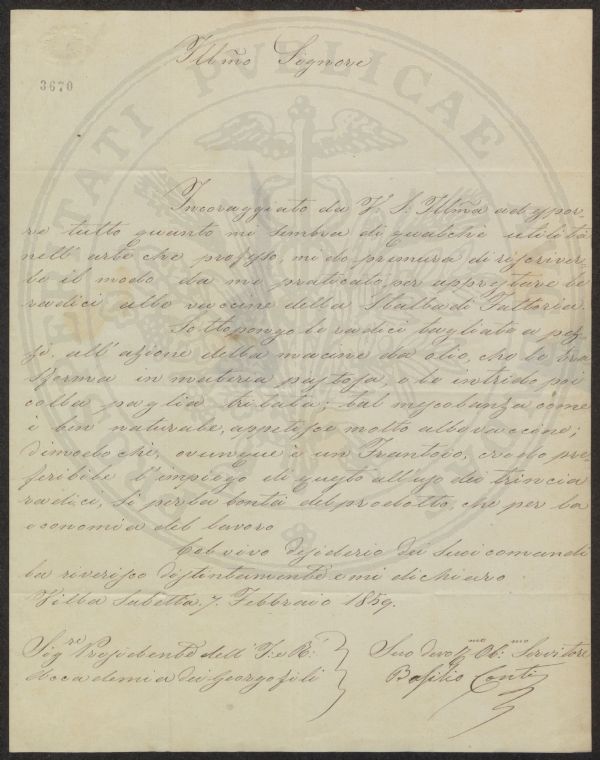 3670
Illmo Signore
Incoraggiato da V. S. Illma ad espor-
re tutto quanto mi sembra di qualche utilità
nell' arte che professo, mi do premura di riscriver-
le il modo da me praticato, per apprestare le
radici alle vaccine della Stalla di Fattoria.
Sottopongo le radici tagliate a pez-
zi, all' azione della macine da olio, che le tra-
sforma in materia pastosa, e le intrido poi
colla paglia tritata; tal mescolanza come
è ben naturale, appetisce molto alle vaccine;
dimodoche, ovunque è un Frantoio, credo pre-
feribile l'impiego di questo all'uso dei trincia
radici, sì per la bontà del prodotto, che per la
economia del lavoro
Col vivo desiderio dei suoi comandi
la riverisco distintamente e mi dichiaro
Villa Saletta 7. Febbraio 1859.
Sigre Presidente dell' I. e R.
Accademia dei Georgofili
Suo devotmo Obmo Servitore
Basilio Conti
PUBLICAE